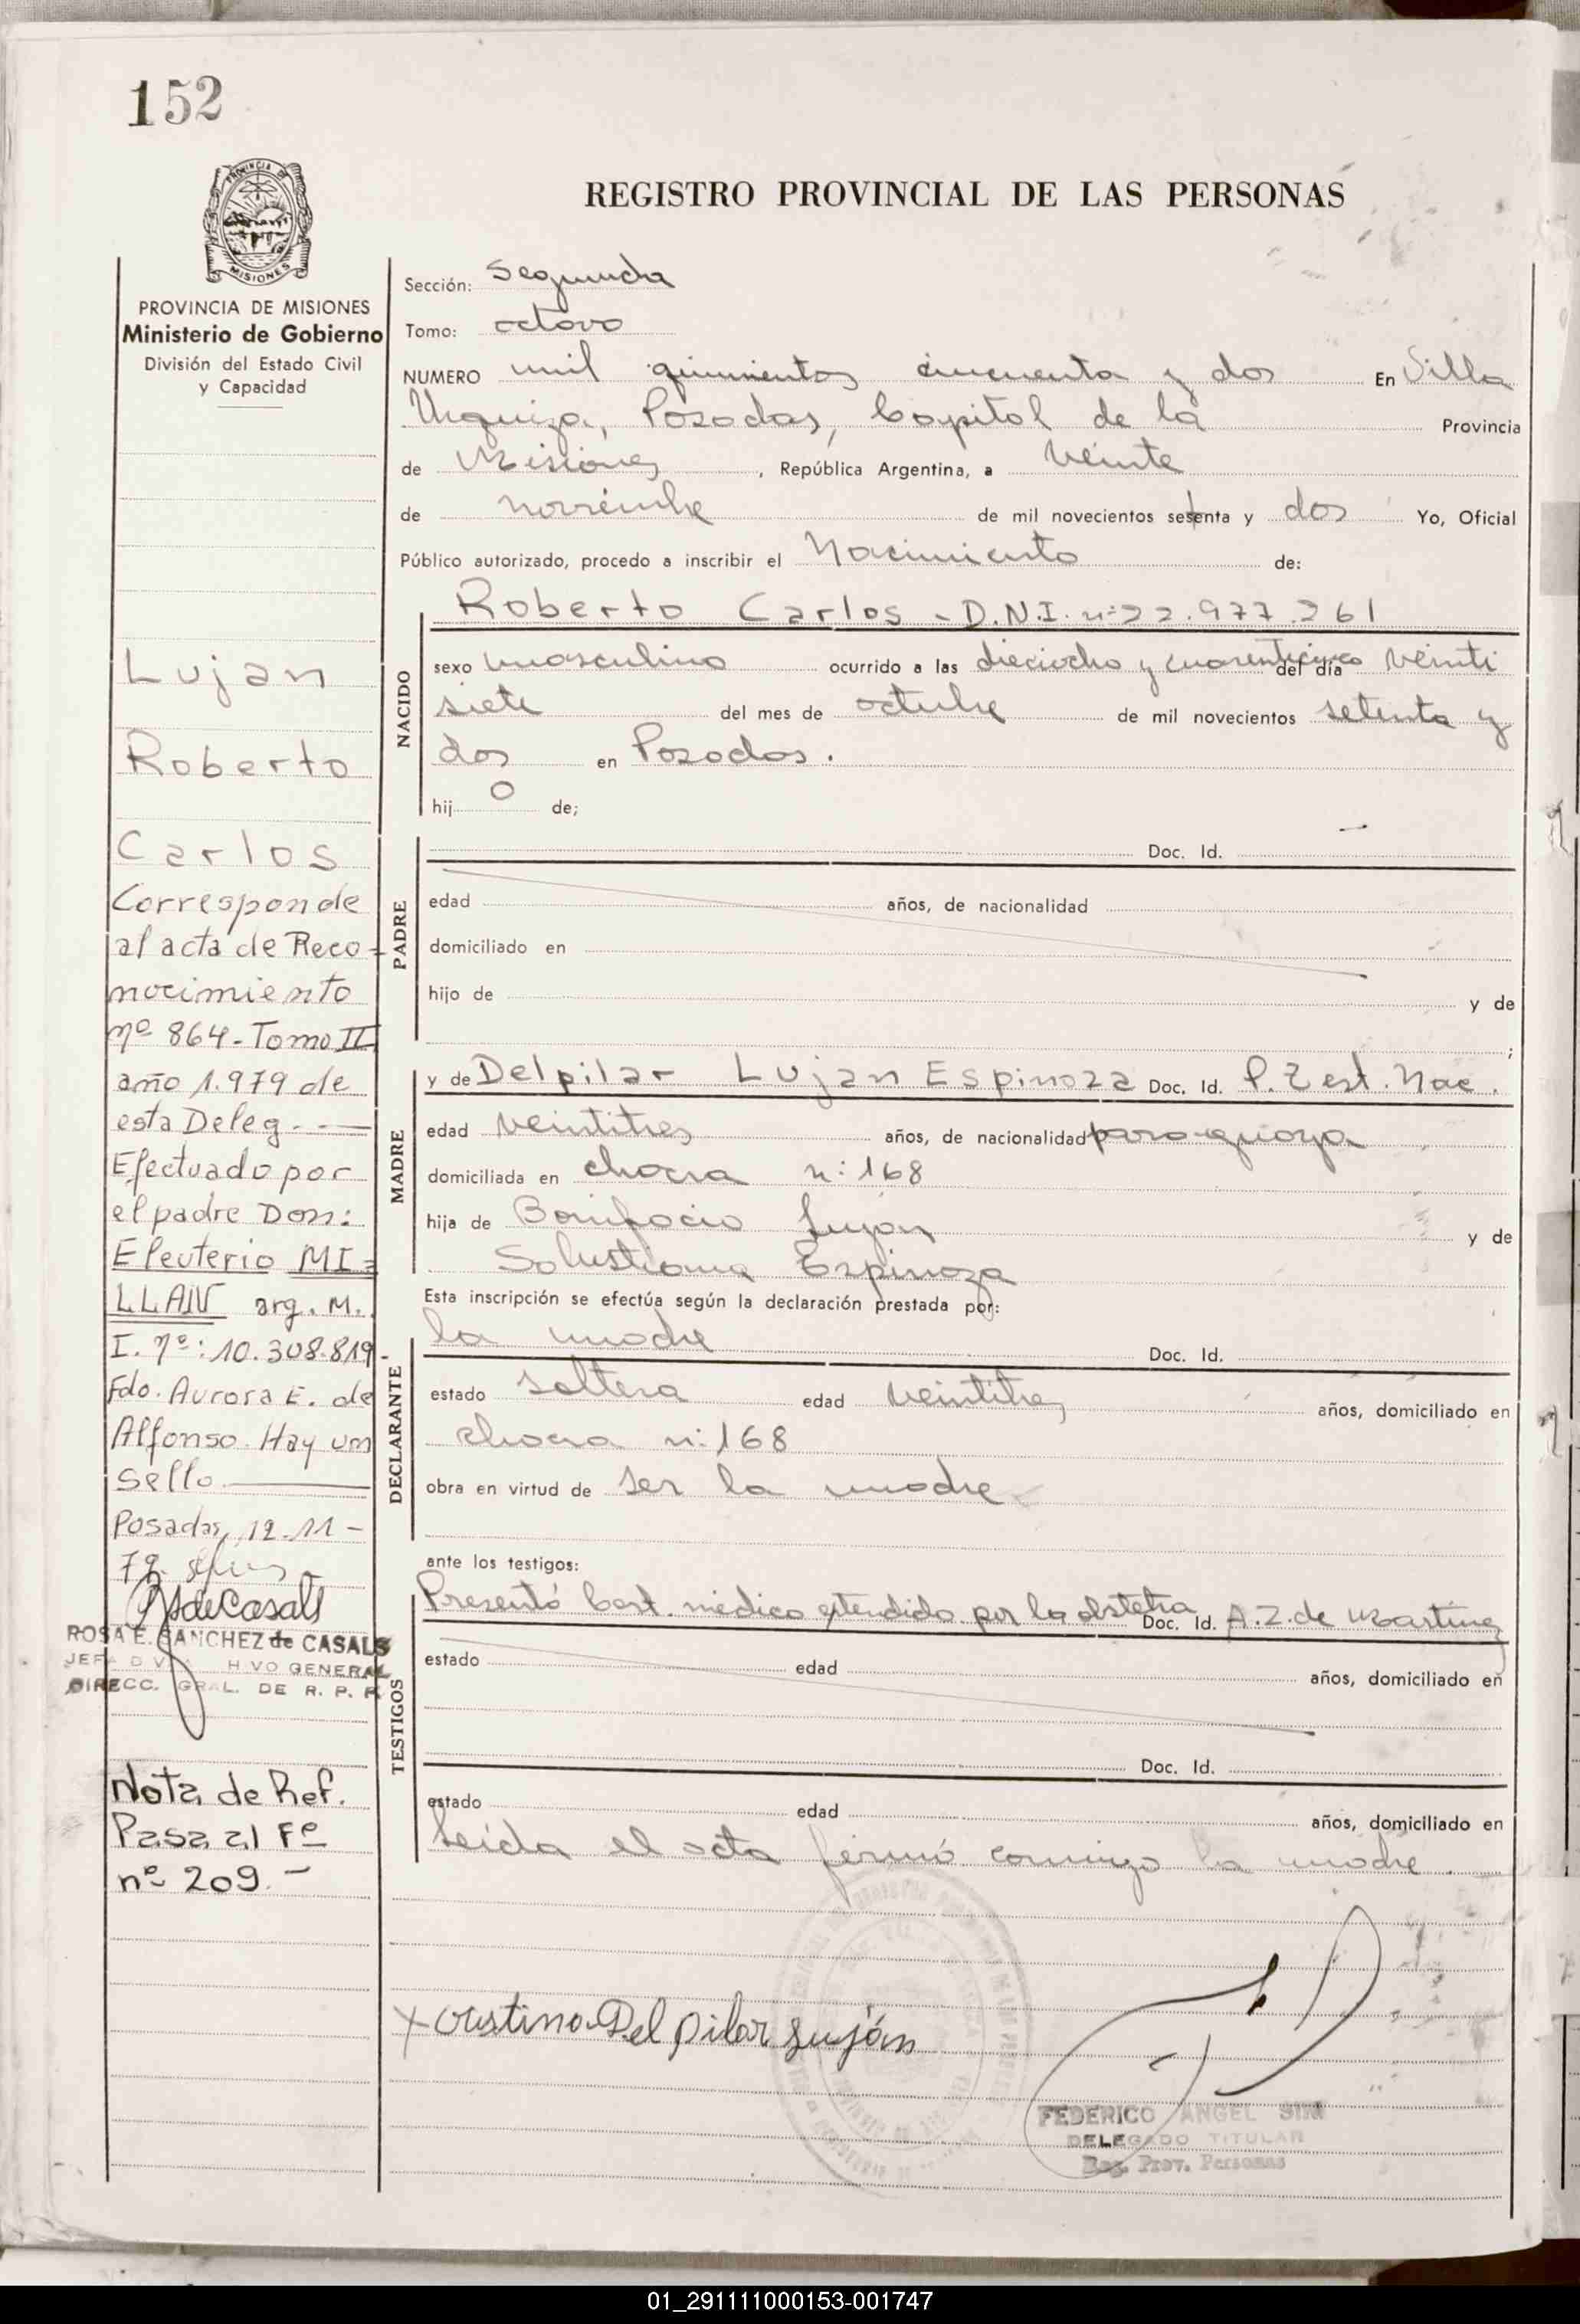 152
PROVINCIA DE
MISIONES
REGISTRO PROVINCIAL DE LAS PERSONAS
PROVINCIA DE MISIONES
Ministerio de Gobierno
División del Estado Civil
y Capacidad
Lujan
Roberto
Carlos
Corresponde
al acta de Reco-
nocimiento
nº 864-Tomo II
año 1.979 de
esta Deleg.
Efectuado por
el padre Don:
Eleuterio MI=
LLAN arg. M.
I. nº: 10.308.819-
Fdo. Aurora E. de
Alfonso. Hay un
sello.
Posadas, 12-11-
79.
ROSA E. SANCHEZ de CASALS
JEFA DIV. HIVO GENERAL
DIRECC. GRAL. DE R. P. P.
Nota de Ref.
Pasa al Fº
nº 209.-
Sección: Segunda
Tomo: octavo
NUMERO mil quinientos cincuenta y dos En Villa
Urquiza, Posadas, Capital de la Provincia
de Misiones, República Argentina, a veinte
de noviembre de mil novecientos setenta y dos Yo, Oficial
Público autorizado, procedo a inscribir el Nacimiento de:
NACIDO
Roberto Carlos - D.N.I. nº 22.977.261
sexo masculino ocurrido a las dieciocho y cuarenticinco del día veinti
siete del mes de octubre de mil novecientos setenta y
dos en Posadas.
hijo de;
PADRE
Doc. Id. -
edad años, de nacionalidad
domiciliado en
hijo de y de
;
MADRE
y de Delpilar Lujan Espinoza Doc. Id. P. Z est. Nac.
edad veintitres años, de nacionalidad paraguaya
domiciliada en chacra n: 168
hija de Bonifacio Lujan y de
Solustiana Espinoza
Esta inscripción se efectúa según la declaración prestada por:
DECLARANTE
la madre Doc. Id.
estado soltera edad veintitres años, domiciliado en
chacra n: 168
obra en virtud de ser la madre
ante los testigos:
TESTIGOS
Presentó Cert. médico extendido por la obstetra Doc. Id. A. Z. de Martinez
estado edad años, domiciliado en
Doc. Id.
estado edad años, domiciliado en
Leída el acta firmó conmigo la madre.
x Cristina Del pilar Luján
FEDERICO ANGEL
DELEGADO TITULAR
Reg. Prov. Personas
01_291111000153-001747